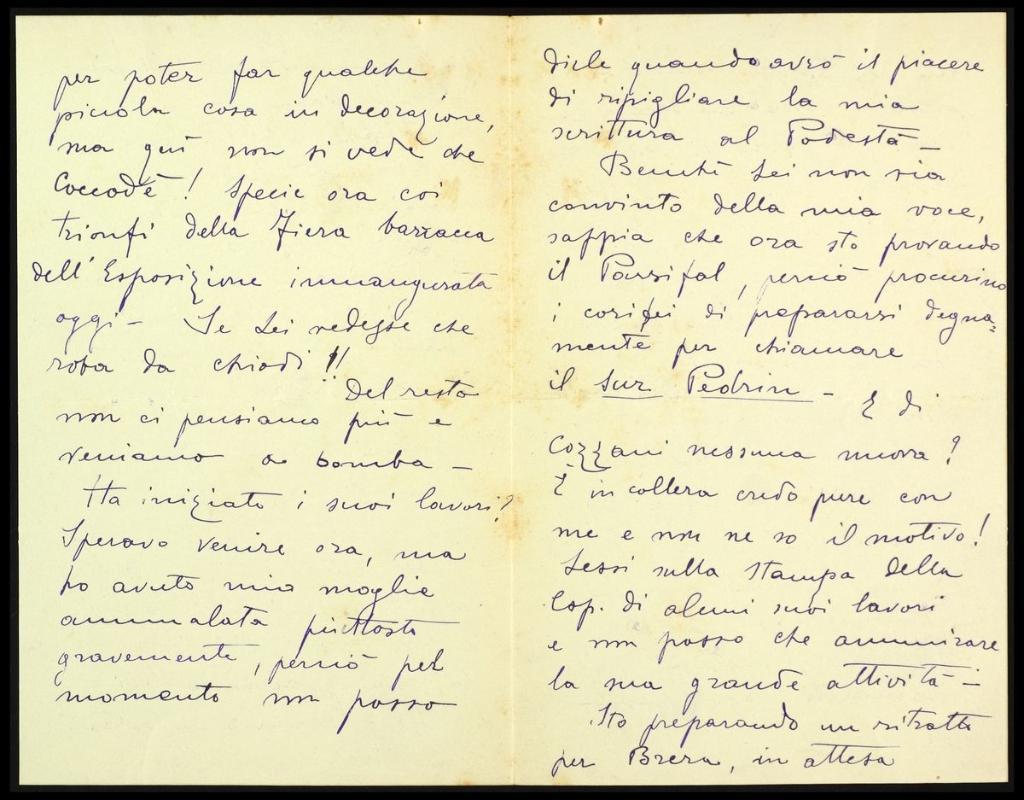 per poter far qualche
piccola cosa in decorazione,
ma quì non si vede che
Coccodè! Specie ora coi
trionfi della Fiera barracca
dell'Esposizione innaugurata
oggi - Se Lei vedesse che
roba da chiodi!!
Del resto
non ci pensiamo più e
veniamo a bomba -
Ha iniziato i suoi lavori?
Speravo venire ora, ma
ho avuto mia moglie
ammalata piuttosto
gravemente, perciò pel
momento non posso
dirle quando avrò il piacere
di ripigliare la mia
scrittura al Podestà -
Benchè Lei non sia
convinto della mia voce,
sappia che ora sto provando
il Parsifal, perciò procurino
i corifei di prepararsi degna=
mente per chiamare
il Sur Pedrin -
E di
Cozzani nessuna nuova?
È in collera credo pure con
me e non ne so il motivo!
Lessi sulla Stampa della
Esp. di alcuni suoi lavori
e non posso che ammirare
la sua grande attività -
Sto preparando un ritratto
per Brera, in attesa